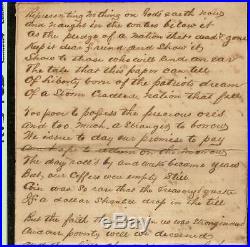 Representing Nothing on Gods earth now
And naught in the waters below it
As the pledge of a Nation that's gone
Keep it dear Friend and Show it
Show to those who will lend an ear
The tale that this paper can tell
Of Liberty born of the patriots dream
Of a Storm Cradled Nation that fell
Too poor to possess the precious ores
And too much a stranger to borrow
We issue to day our promise to pay
And hope to redeem on the morrow
The days roll'd by and weeks became years
But our Coffers were empty Still
Coin was So rare that the Treasury
If a dollar Should drop in the till
But the faith that was in us was strong
And our poverty well we discerned